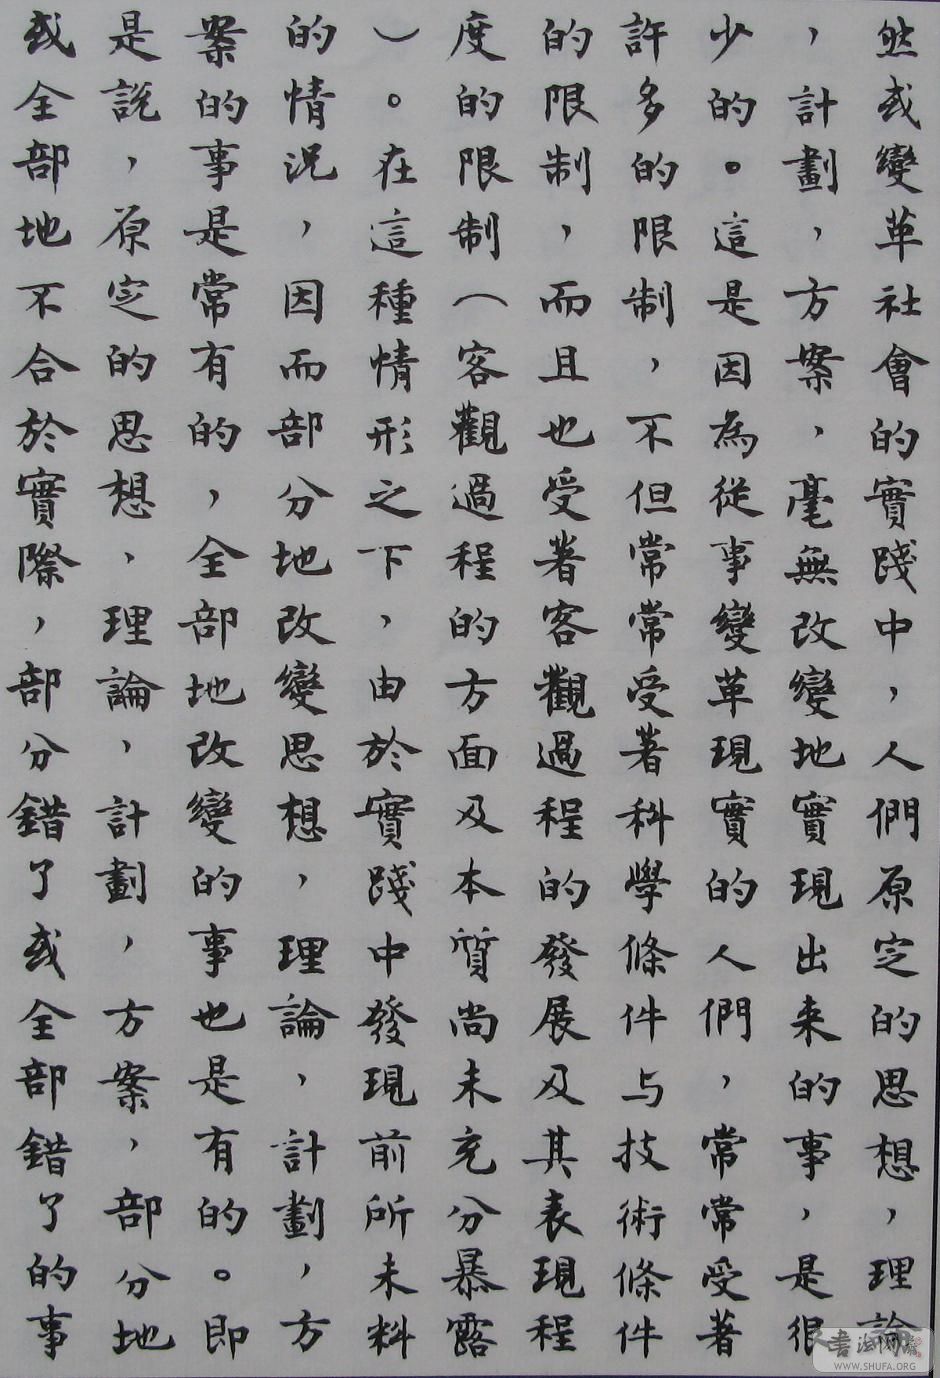 然或變革社會的實踐中，人們原定的思想，理論
，計劃，方案，毫無改變地實現出来的事，是很
少的。這是因為從事變革現實的人們，常常受著
許多的限制，不但常常受著科學條件与技術條件
的限制，而且也受著客觀過程的發展及其表現程
度的限制（客觀過程的方面及本質尚未充分暴露
）。在這種情形之下，由於實踐中發現前所未料
的情況，因而部分地改變思想，理論，計劃，方
案的事是常有的，全部地改變的事也是有的。即
是說，原定的思想，理論，計劃，方案，部分地
或全部地不合於實際，部分錯了或全部錯了的事
書法网
WWW.SHUFA.ORG